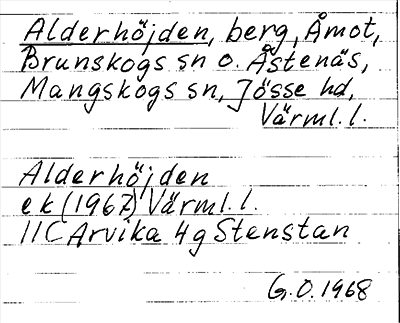 Alderhöjden, berg, Åmot,
Brunskogs sn o. Åstenäs,
Mangskogs sn, Jösse hd,
Värml. l.
Alderhöjden
ek (1967) Värml. l.
11C Arvika 4g Stenstan
G.O. 1968